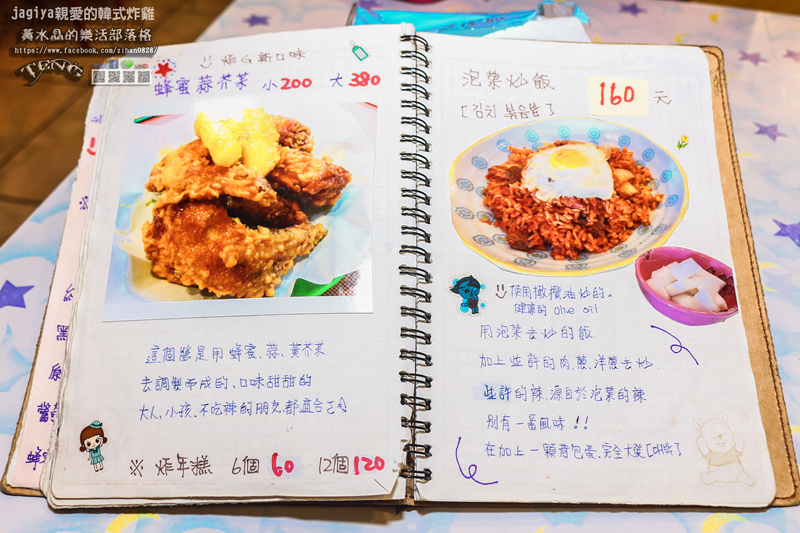 jagiya親愛的韓式炸雞
黃水晶的樂活部落格
https://www.facebook.com/zihan0828/
TBNC
炸G新口味
蜂蜜蒜芥茉 小200 大380
這個醬是用蜂蜜、蒜、黃芥茉
去調製而成的、口味甜甜的
大人、小孩、不吃辣的朋友都適合
※ 炸年糕 6個60 12個120
泡菜炒飯
160元
使用橄欖油炒的。
健康的 olive oil
用泡菜去炒的飯
加上些許的肉、蔥、洋蔥去炒
些許的辣、源自於泡菜的辣
別有一番風味!!
在加上一顆荷包蛋、完全大發
黑
原